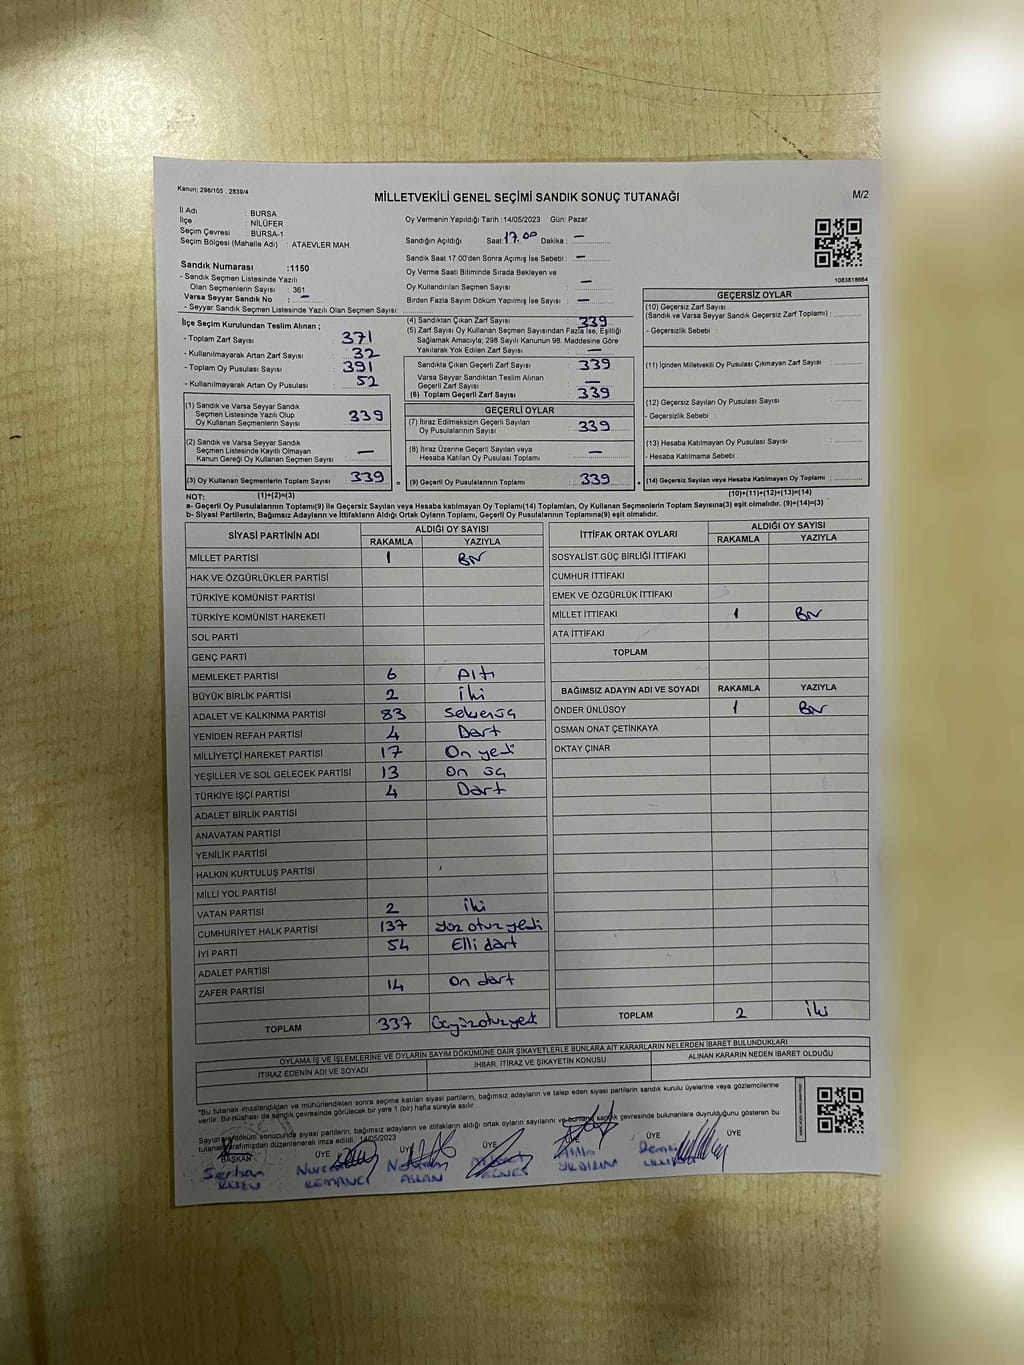 Kanun; 298/105 . 2839/4
MİLLETVEKİLİ GENEL SEÇİMİ SANDIK SONUÇ TUTANAĞI
M/2
İl Adı : BURSA
İlçe : NİLÜFER
Seçim Çevresi : BURSA-1
Seçim Bölgesi (Mahalle Adı) : ATAEVLER MAH.
Oy Vermenin Yapıldığı Tarih :14/05/2023 Gün: Pazar
Sandığın Açıldığı Saat: 17.00 Dakika : —
Sandık Saat 17:00'den Sonra Açımış İse Sebebi : —
Oy Verme Saati Bitiminde Sırada Bekleyen ve
Oy Kullandırılan Seçmen Sayısı : —
Birden Fazla Sayım Döküm Yapılmış İse Sayısı : —
1083818664
Sandık Numarası :1150
- Sandık Seçmen Listesinde Yazılı
Olan Seçmenlerin Sayısı : 361
Varsa Seyyar Sandık No : —
- Seyyar Sandık Seçmen Listesinde Yazılı Olan Seçmen Sayısı:
İlçe Seçim Kurulundan Teslim Alınan ;
- Toplam Zarf Sayısı : 371
- Kullanılmayarak Artan Zarf Sayısı : 32
- Toplam Oy Pusulası Sayısı : 391
- Kullanılmayarak Artan Oy Pusulası : 52
(1) Sandık ve Varsa Seyyar Sandık
Seçmen Listesinde Yazılı Olup
Oy Kullanan Seçmenlerin Sayısı : 339
(2) Sandık ve Varsa Seyyar Sandık
Seçmen Listesinde Kayıtlı Olmayan
Kanun Gereği Oy Kullanan Seçmen Sayısı : —
(3) Oy Kullanan Seçmenlerin Toplam Sayısı : 339
(4) Sandıktan Çıkan Zarf Sayısı : 339
(5) Zarf Sayısı Oy Kullanan Seçmen Sayısından Fazla İse, Eşitliği
Sağlamak Amacıyla; 298 Sayılı Kanunun 98. Maddesine Göre
Yakılarak Yok Edilen Zarf Sayısı : —
Sandıkta Çıkan Geçerli Zarf Sayısı : 339
Varsa Seyyar Sandıktan Teslim Alınan
Geçerli Zarf Sayısı : —
(6) Toplam Geçerli Zarf Sayısı : 339
GEÇERLİ OYLAR
(7) İtiraz Edilmeksizin Geçerli Sayılan
Oy Pusulalarının Sayısı : 339
(8) İtiraz Üzerine Geçerli Sayılan veya
Hesaba Katılan Oy Pusulası Toplamı : —
= (9) Geçerli Oy Pusulalarının Toplamı : 339 +
GEÇERSİZ OYLAR
(10) Geçersiz Zarf Sayısı
(Sandık ve Varsa Seyyar Sandık Geçersiz Zarf Toplamı) :
- Geçersizlik Sebebi :
(11) İçinden Milletvekili Oy Pusulası Çıkmayan Zarf Sayısı :
(12) Geçersiz Sayılan Oy Pusulası Sayısı :
- Geçersizlik Sebebi :
(13) Hesaba Katılmayan Oy Pusulası Sayısı :
- Hesaba Katılmama Sebebi :
(14) Geçersiz Sayılan veya Hesaba Katılmayan Oy Toplamı :
NOT: (1)+(2)=(3)
(10)+(11)+(12)+(13)=(14)
a- Geçerli Oy Pusulalarının Toplamı(9) ile Geçersiz Sayılan veya Hesaba katılmayan Oy Toplamı(14) Toplamları, Oy Kullanan Seçmenlerin Toplam Sayısına(3) eşit olmalıdır. (9)+(14)=(3)
b- Siyasi Partilerin, Bağımsız Adayların ve İttifakların Aldığı Ortak Oyların Toplamı, Geçerli Oy Pusulalarının Toplamına(9) eşit olmalıdır.
SİYASİ PARTİNİN ADI ALDIĞI OY SAYISI
RAKAMLA YAZIYLA
MİLLET PARTİSİ 1 Bir
HAK VE ÖZGÜRLÜKLER PARTİSİ
TÜRKİYE KOMÜNİST PARTİSİ
TÜRKİYE KOMÜNİST HAREKETİ
SOL PARTİ
GENÇ PARTİ
MEMLEKET PARTİSİ 6 Altı
BÜYÜK BİRLİK PARTİSİ 2 iki
ADALET VE KALKINMA PARTİSİ 83 Seksenüç
YENİDEN REFAH PARTİSİ 4 Dört
MİLLİYETÇİ HAREKET PARTİSİ 17 On yedi
YEŞİLLER VE SOL GELECEK PARTİSİ 13 On üç
TÜRKİYE İŞÇİ PARTİSİ 4 Dört
ADALET BİRLİK PARTİSİ
ANAVATAN PARTİSİ
YENİLİK PARTİSİ
HALKIN KURTULUŞ PARTİSİ
MİLLİ YOL PARTİSİ
VATAN PARTİSİ 2 iki
CUMHURİYET HALK PARTİSİ 137 yüz otuz yedi
İYİ PARTİ 54 Elli dört
ADALET PARTİSİ
ZAFER PARTİSİ 14 On dört
TOPLAM 337 Üçyüzotuzyedi
İTTİFAK ORTAK OYLARI ALDIĞI OY SAYISI
RAKAMLA YAZIYLA
SOSYALİST GÜÇ BİRLİĞİ İTTİFAKI
CUMHUR İTTİFAKI
EMEK VE ÖZGÜRLÜK İTTİFAKI
MİLLET İTTİFAKI 1 Bir
ATA İTTİFAKI
TOPLAM
BAĞIMSIZ ADAYIN ADI VE SOYADI RAKAMLA YAZIYLA
ÖNDER ÜNLÜSOY 1 Bir
OSMAN ONAT ÇETİNKAYA
OKTAY ÇINAR
TOPLAM 2 iki
OYLAMA İŞ VE İŞLEMLERİNE VE OYLARIN SAYIM DÖKÜMÜNE DAİR ŞİKAYETLERLE BUNLARA AİT KARARLARIN NELERDEN İBARET BULUNDUKLARI
İTİRAZ EDENİN ADI VE SOYADI
İHBAR, İTİRAZ VE ŞİKAYETİN KONUSU
ALINAN KARARIN NEDEN İBARET OLDUĞU
*Bu tutanak imzalandıktan ve mühürlendikten sonra seçime katılan siyasi partilerin, bağımsız adayların ve talep eden siyasi partilerin sandık kurulu üyelerine veya gözlemcilerine
verilir. Bir nüshası da sandık çevresinde görülecek bir yere 1 (bir) hafta süreyle asılır.
Sayım ve döküm sonucunda siyasi partilerin, bağımsız adayların ve ittifakların aldığı ortak oyların sayılarını ve bunların sandık çevresinde bulunanlara duyrulduğunu gösteren bu
tutanak tarafımızdan düzenlenerek imza edildi. 14/05/2023
BAŞKAN ÜYE ÜYE ÜYE ÜYE ÜYE ÜYE
Serhan
KEMANCI ASLAN YILDIRIM